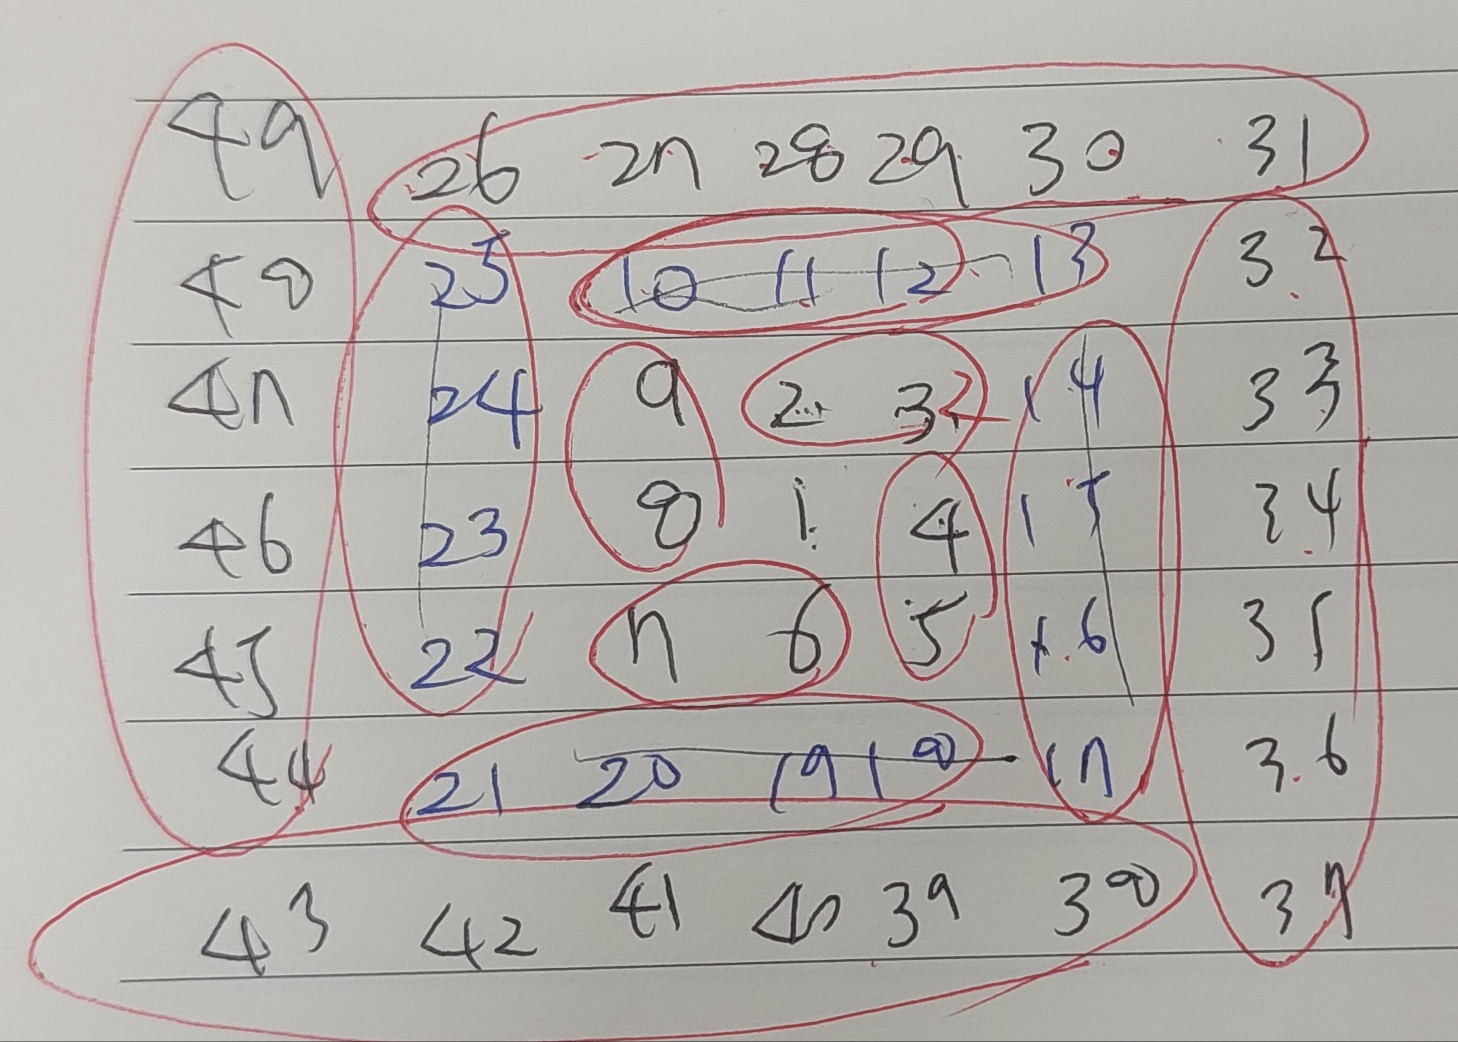 49 26 27 28 29 30 31
48 25 10 11 12 13 32
47 24 9 2 3 2 14 33
46 23 8 1 4 15 34
45 22 7 6 5 16 35
44 21 20 19 18 17 36
43 42 41 40 39 38 37